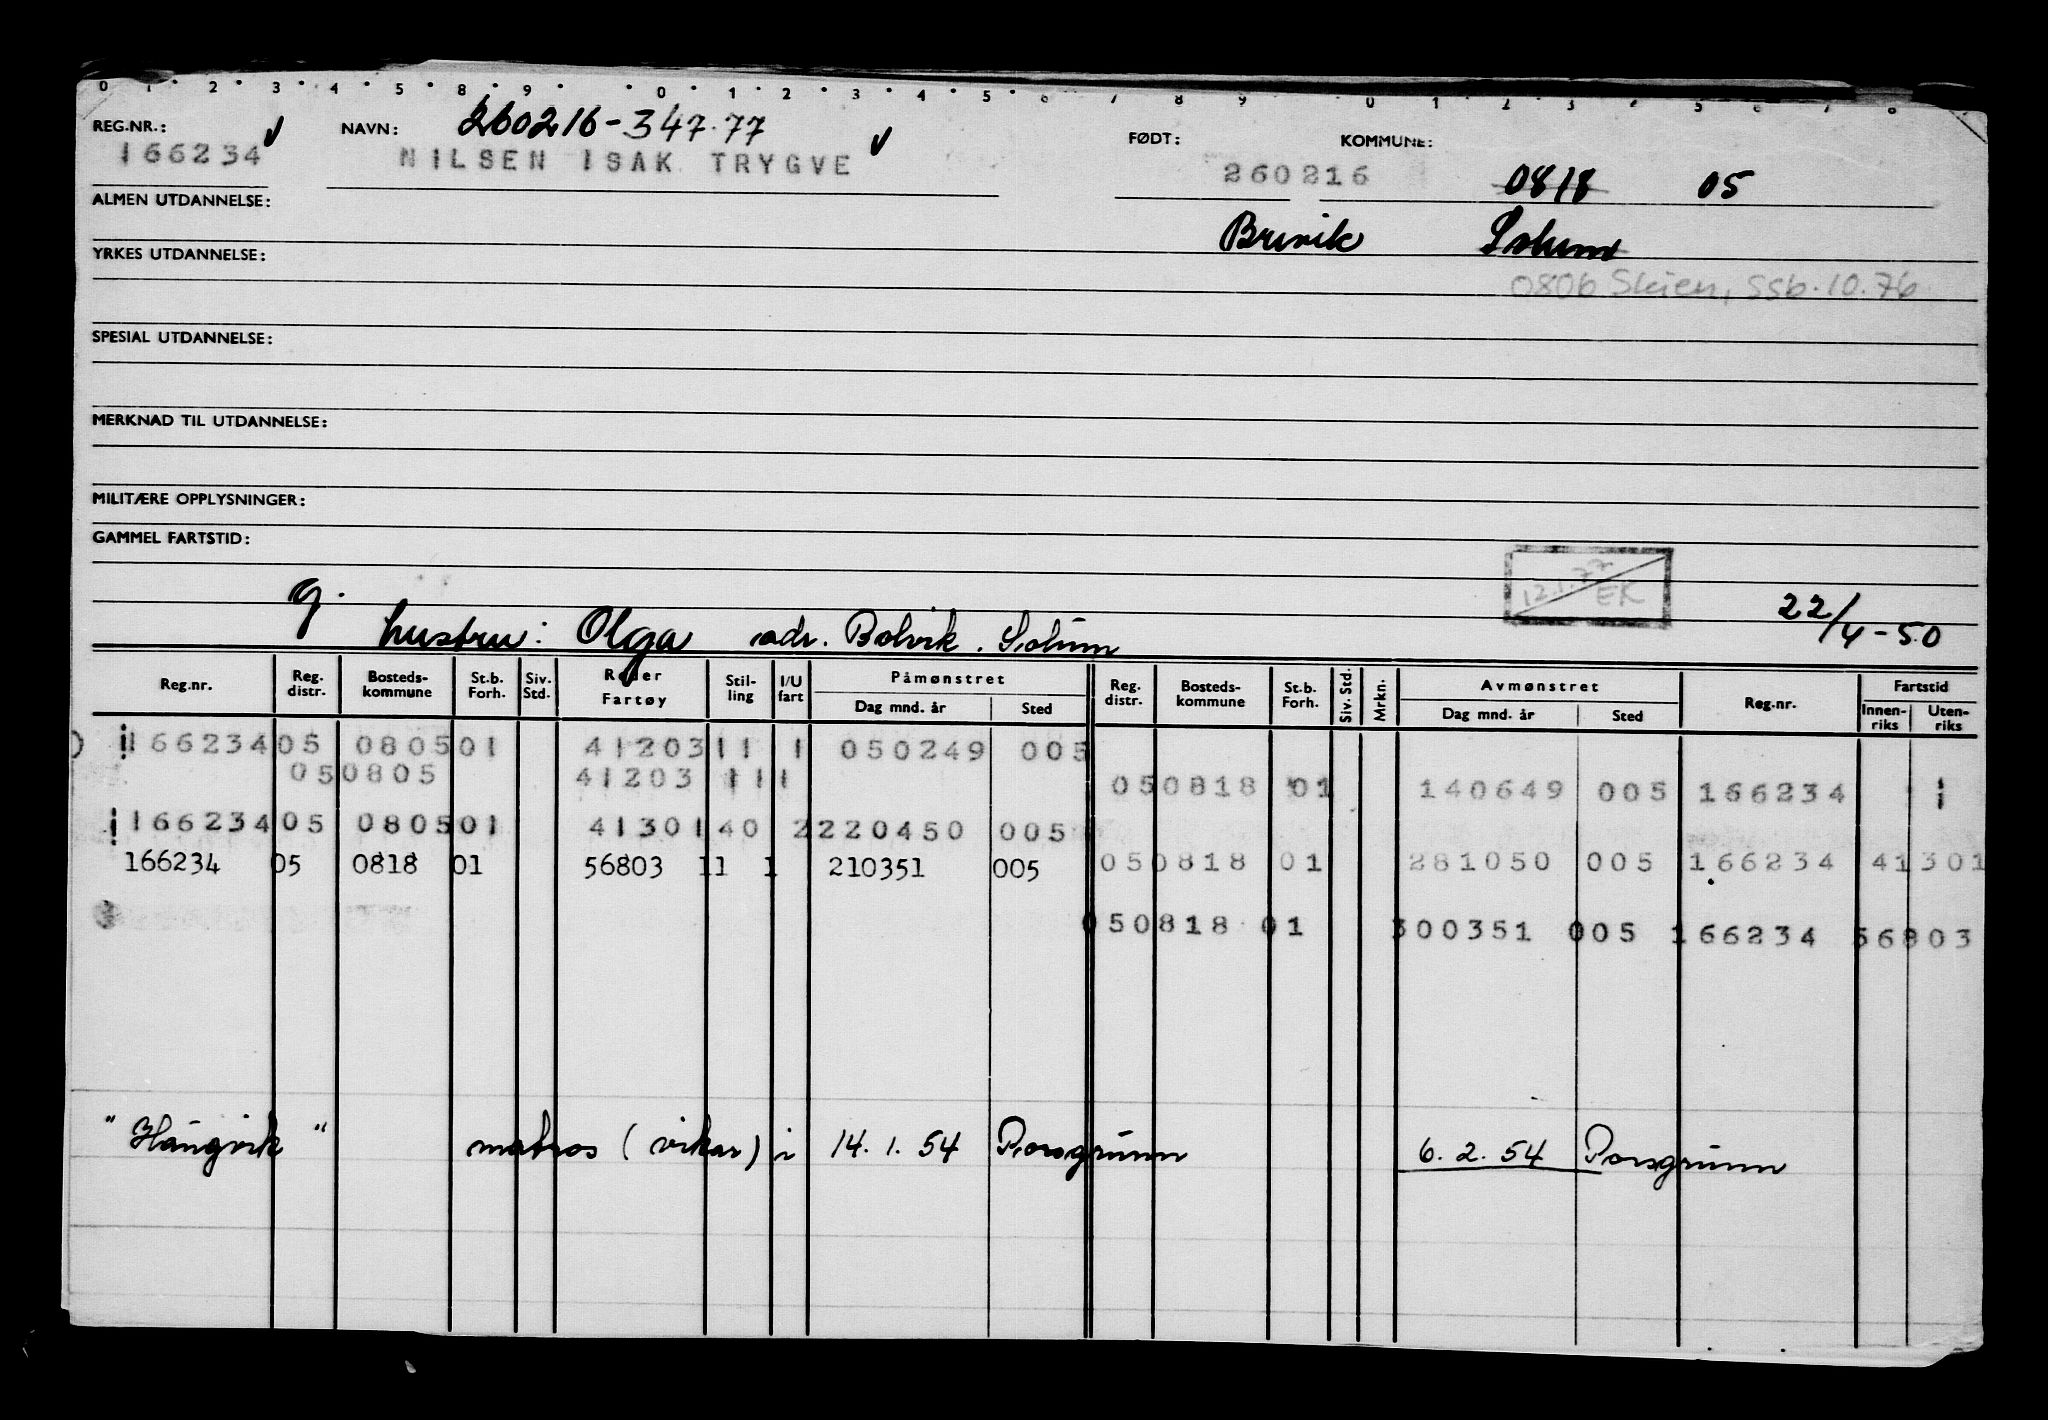 0 1 2 3 4 5 8 9 0 1 2 3 4 5 6 7 8 9 0 1 2 3 4 5 6 7 8
REG.NR.: NAVN: 260216-347.77 FØDT: KOMMUNE:
166234 NILSEN ISAK TRYGVE 260216 0818 05
ALMEN UTDANNELSE:
Brevik Solum
YRKES UTDANNELSE:
0806 Skien, SSb. 10.76
SPESIAL UTDANNELSE:
MERKNAD TIL UTDANNELSE:
MILITÆRE OPPLYSNINGER:
GAMMEL FARTSTID:
12.1.77 EK
g. 22/4-50
hustru: Olga adr. Bolvik. Solum
Reg.nr. Reg. distr. Bosteds-kommune St.b. Forh. Siv. Std. Reder Fartøy Stil-ling I/U fart Påmønstret Dag mnd. år Sted Reg. distr. Bosteds-kommune St.b. Forh. Siv. Std. Mrkn. Avmønstret Dag mnd. år Sted Reg.nr. Fartstid Innen-riks Uten-riks
166234 05 0805 01 41203 11 1 050249 005
050805 41203 11 1 05 0818 01 140649 005 166234 1
166234 05 0805 01 41301 40 2 220450 005
166234 05 0818 01 56803 11 1 210351 005 05 0818 01 281050 005 166234 41301
05 0818 01 300351 005 166234 56803
"Haugvik" matros (vikar) i 14.1.54 Porsgrunn 6.2.54 Porsgrunn